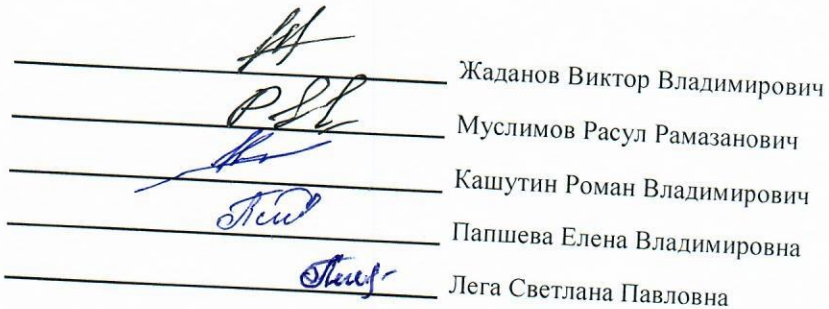 Жаданов Виктор Владимирович
Муслимов Расул Рамазанович
Кашутин Роман Владимирович
Папшева Елена Владимировна
Лега Светлана Павловна